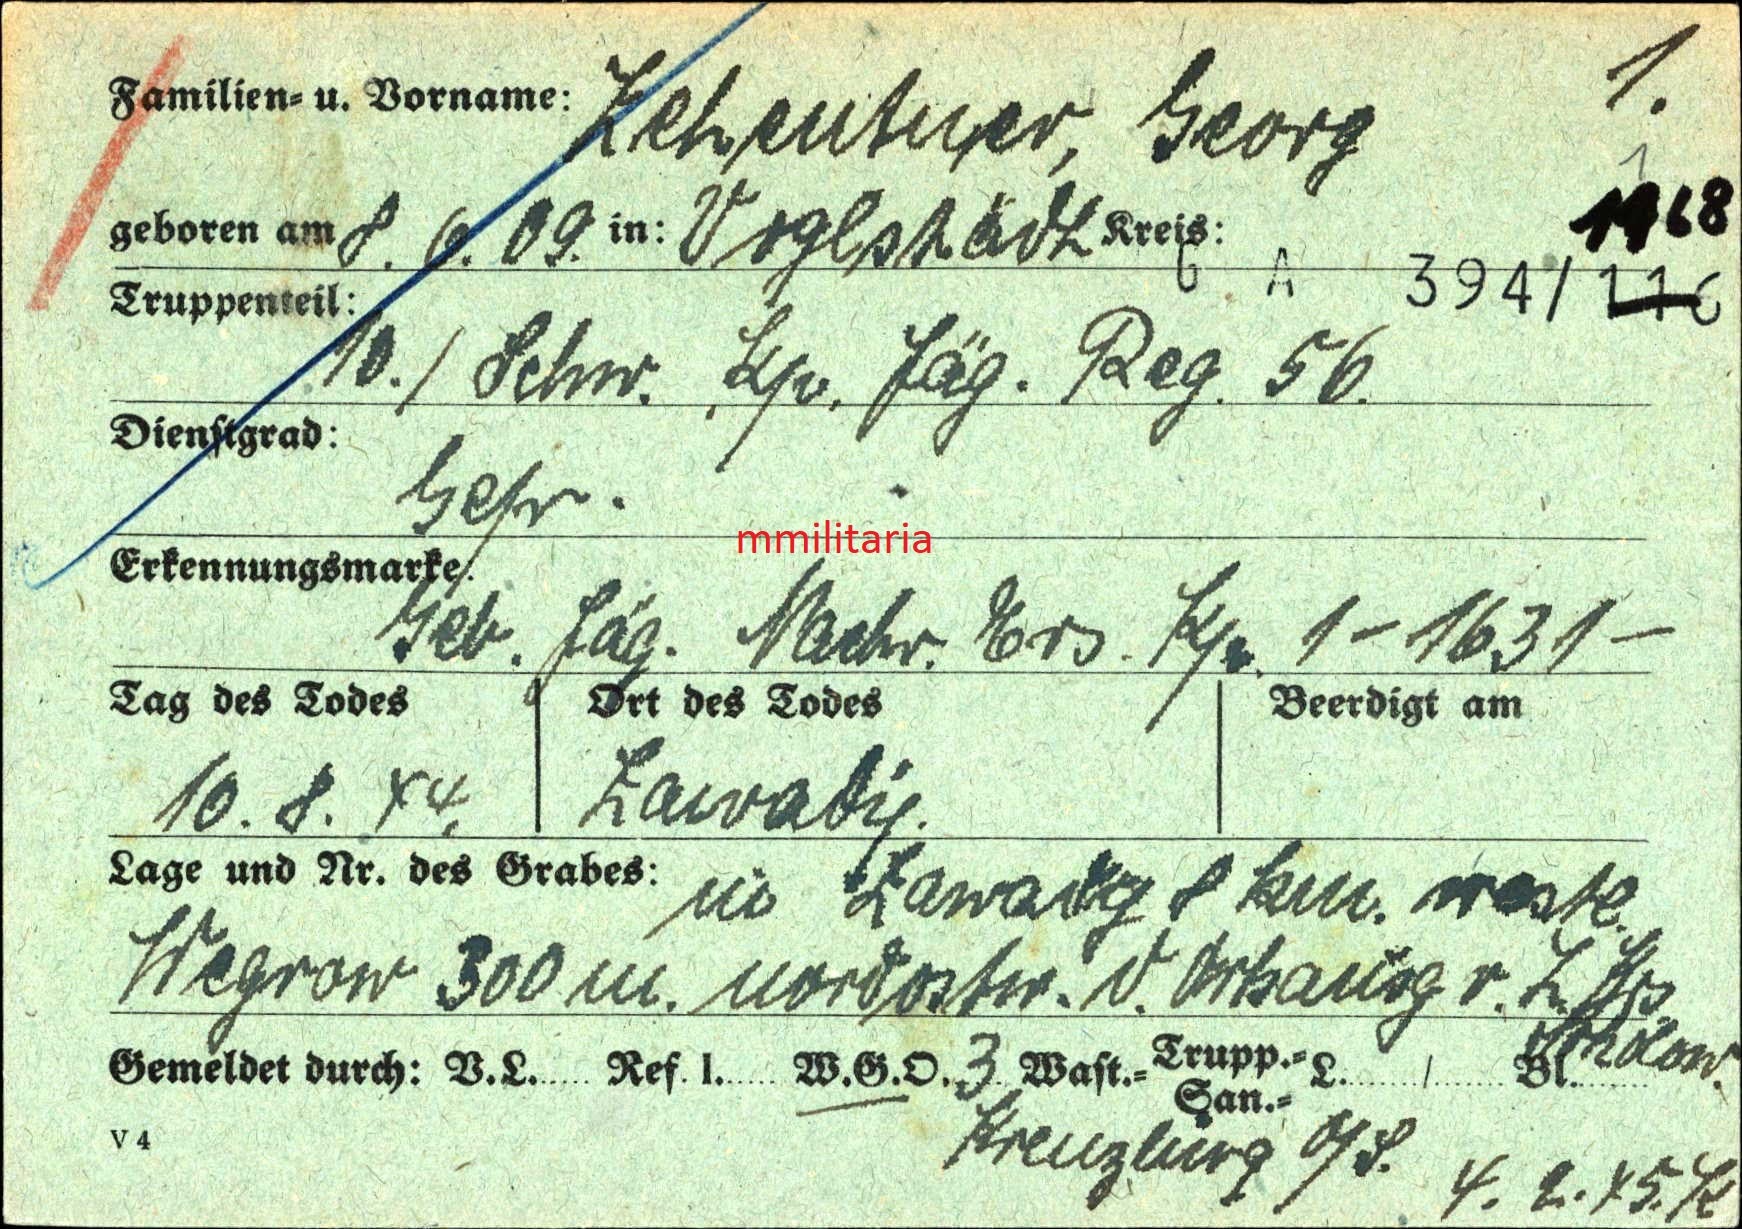 1.
Familien- u. Vorname: Zehentner, Georg
1
1968
geboren am 8. 6. 09. in: Voglstädt Kreis:
6 A 394/116
Truppenteil:
10./ Schw. Kp. Jäg. Reg. 56.
Dienstgrad:
Gefr.
mmilitaria
Erkennungsmarke:
Geb. Jäg. Nachr. Ers. Kp. 1 - 1631 -
Tag des Todes Ort des Todes Beerdigt am
10. 8. 44. Zawady.
Lage und Nr. des Grabes: in Zawady 8 km. westl.
Wegrow 300 m. nordostw. v.
Gemeldet durch: V.L...... Ref. I...... W.G.O. 3 Wast.- Trupp.- San.- L......../........ Bl.........
Kreuzburg O/S.
V 4
4. 2. 45.